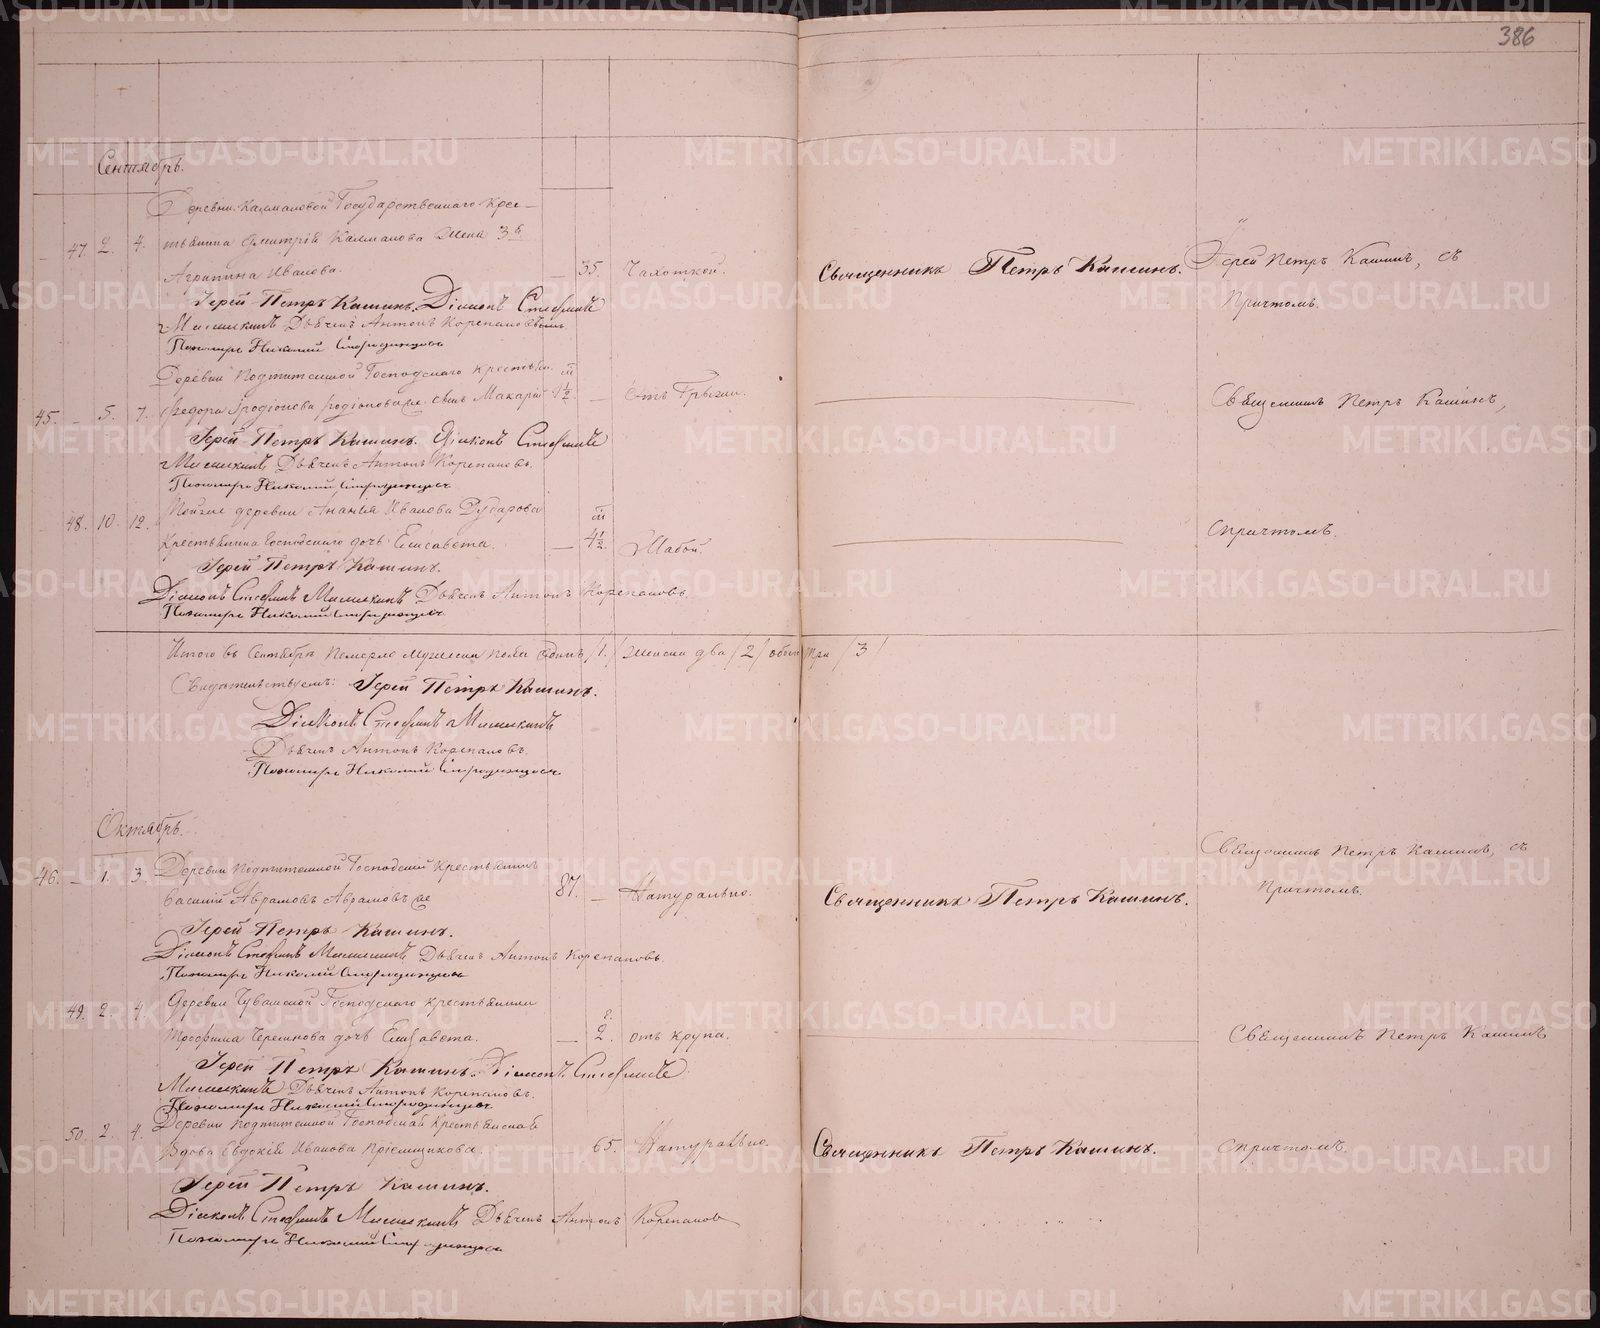 386
Сентябрь.
Деревни Калмаковой Государственнаго крес-
47. 2. 4. тьянина Дмитрія Калмакова жена 3я
Агрипина Иванова. — 35. Чахоткой. Священникъ Петръ Кашинъ. Іерей Петръ Кашинъ, съ
Іерей Петръ Кашинъ. Діаконъ Стефанъ Причтомъ.
Мишкинъ Дьячекъ Антонъ Корепановъ
Пономарь Николай
Деревни Господскаго крестьян. м
45. — 5. 7. Федора Іродіонова сынъ Макарій 1½ — Отъ Грыжи. Священникъ Петръ Кашинъ,
Іерей Петръ Кашинъ. Діаконъ Стефанъ
Мишкинъ Дьячекъ Антонъ Корепановъ.
Пономарь Николай
48. 10. 12. Той же деревни Ананія Иванова м
крестьянина Господскаго дочь Елисавета. — 4½ Жабой. съ причтомъ.
Іерей Петръ Кашинъ.
Діаконъ Стефанъ Мишкинъ Дьячекъ Антонъ Корепановъ.
Пономарь Николай
Итого въ Сентябрѣ померло мужеска пола одинъ /1./ женска два /2/ обоего три /3/
Свидѣтельствуемъ: Іерей Петръ Кашинъ.
Діаконъ Стефанъ Мишкинъ
Дьячекъ Антонъ Корепановъ.
Пономарь Николай
Октябрь.
Деревни Господскій Крестьянинъ Священникъ Петръ Кашинъ, съ
46. — 1. 3. Василій Абрамовъ Абрамовъ же 87. — Натурально. Священникъ Петръ Кашинъ. причтомъ.
Іерей Петръ Кашинъ.
Діаконъ Стефанъ Мишкинъ Дьячекъ Антонъ Корепановъ.
Пономарь Николай
49. 2. 4. Деревни Чувашской Господскаго крестьянина г.
Трофима дочь Елисавета. — 2. отъ крупа. Священникъ Петръ Кашинъ
Іерей Петръ Кашинъ. Діаконъ Стефанъ
Мишкинъ Дьячекъ Антонъ Корепановъ.
Пономарь Николай
50. 2. 4. Деревни Господская Крестьянская
Вдова Евдокія Иванова — 65. Натурально. Священникъ Петръ Кашинъ. съ причтомъ.
Іерей Петръ Кашинъ.
Діаконъ Стефанъ Мишкинъ Дьячекъ Антонъ Корепановъ
Пономарь Николай
METRIKI.GASO-URAL.RU